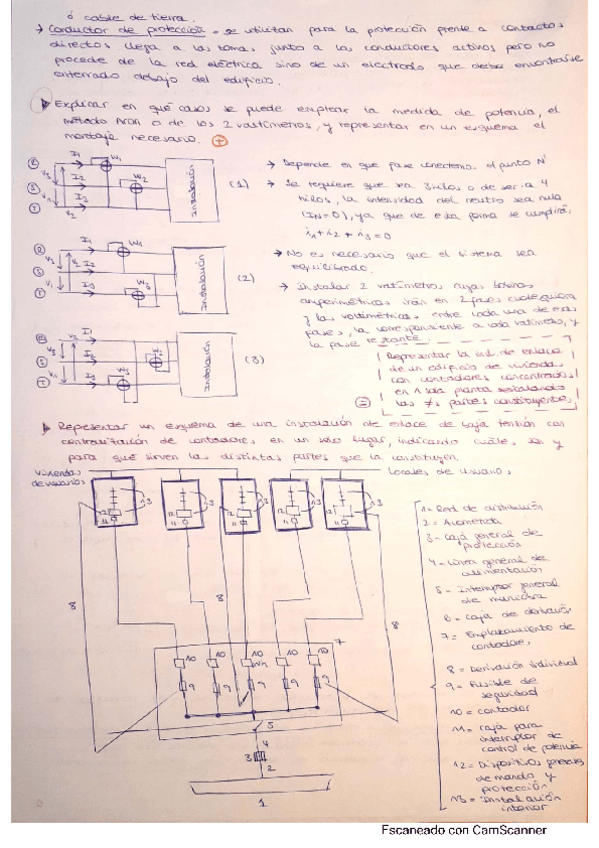 ó cable de tierra.
→ Conductor de protección = se utilizan para la protección frente a contactos
directos llega a las tomas junto a los conductores activos pero no
procede de la red eléctrica sino de un electrodo que debe encontrarse
enterrado debajo del edificio.
Explicar en qué casos se puede emplear la medida de potencia, el
método Aron o de los 2 vatímetros, y representar en un esquema el
montaje necesario. +
R S T I1 I2 I3 W1 W2 Instalación (1)
→ Depende en que fase conectemos el punto N'
→ Se requiere que sea 3 hilos o de ser a 4
hilos, la intensidad del neutro sea nula
(IN=0), ya que de esta forma se cumplirá:
i1+i2+i3=0
R S T I1 I2 I3 W1 Instalación (2)
→ No es necesario que el sistema sea
equilibrado.
→ Instalar 2 vatímetros cuyas bobinas
amperimétricas irán en 2 fases cualesquiera
y las voltimétricas, entre cada una de esas
fases, la correspondiente a cada vatímetro, y
la fase restante.
I1 I2 I3 Instalación (3)
Representar la inst. de enlace
de un edificio de viviendas
con contadores concentrados
en 1 sola planta señalando
las ≠s partes constituyentes
=
Representar un esquema de una instalación de enlace de baja tensión con
centralización de contadores, en un solo lugar, indicando cuáles son y
para qué sirven las distintas partes que la constituyen.
viviendas
de usuarios
locales de usuarios
13 13 13 13 13
12 12 12 12 12
11 11 11 11 11
8 8 8
7
10 10 10 10 10
9 9 9 9 9
5
4
3
2
1
1= Red de distribución
2= Acometida
3= Caja general de
protección
4= Línea general de
alimentación
5= Interruptor general
de maniobra
6= Caja de derivación
7= Emplazamiento de
contadores
8= Derivación individual
9= Fusible de
seguridad
10= contador
11= caja para
interruptor de
control de potencia
12= Dispositivos generales
de mando y
protección
13= Instalación
interior
Escaneado con CamScanner